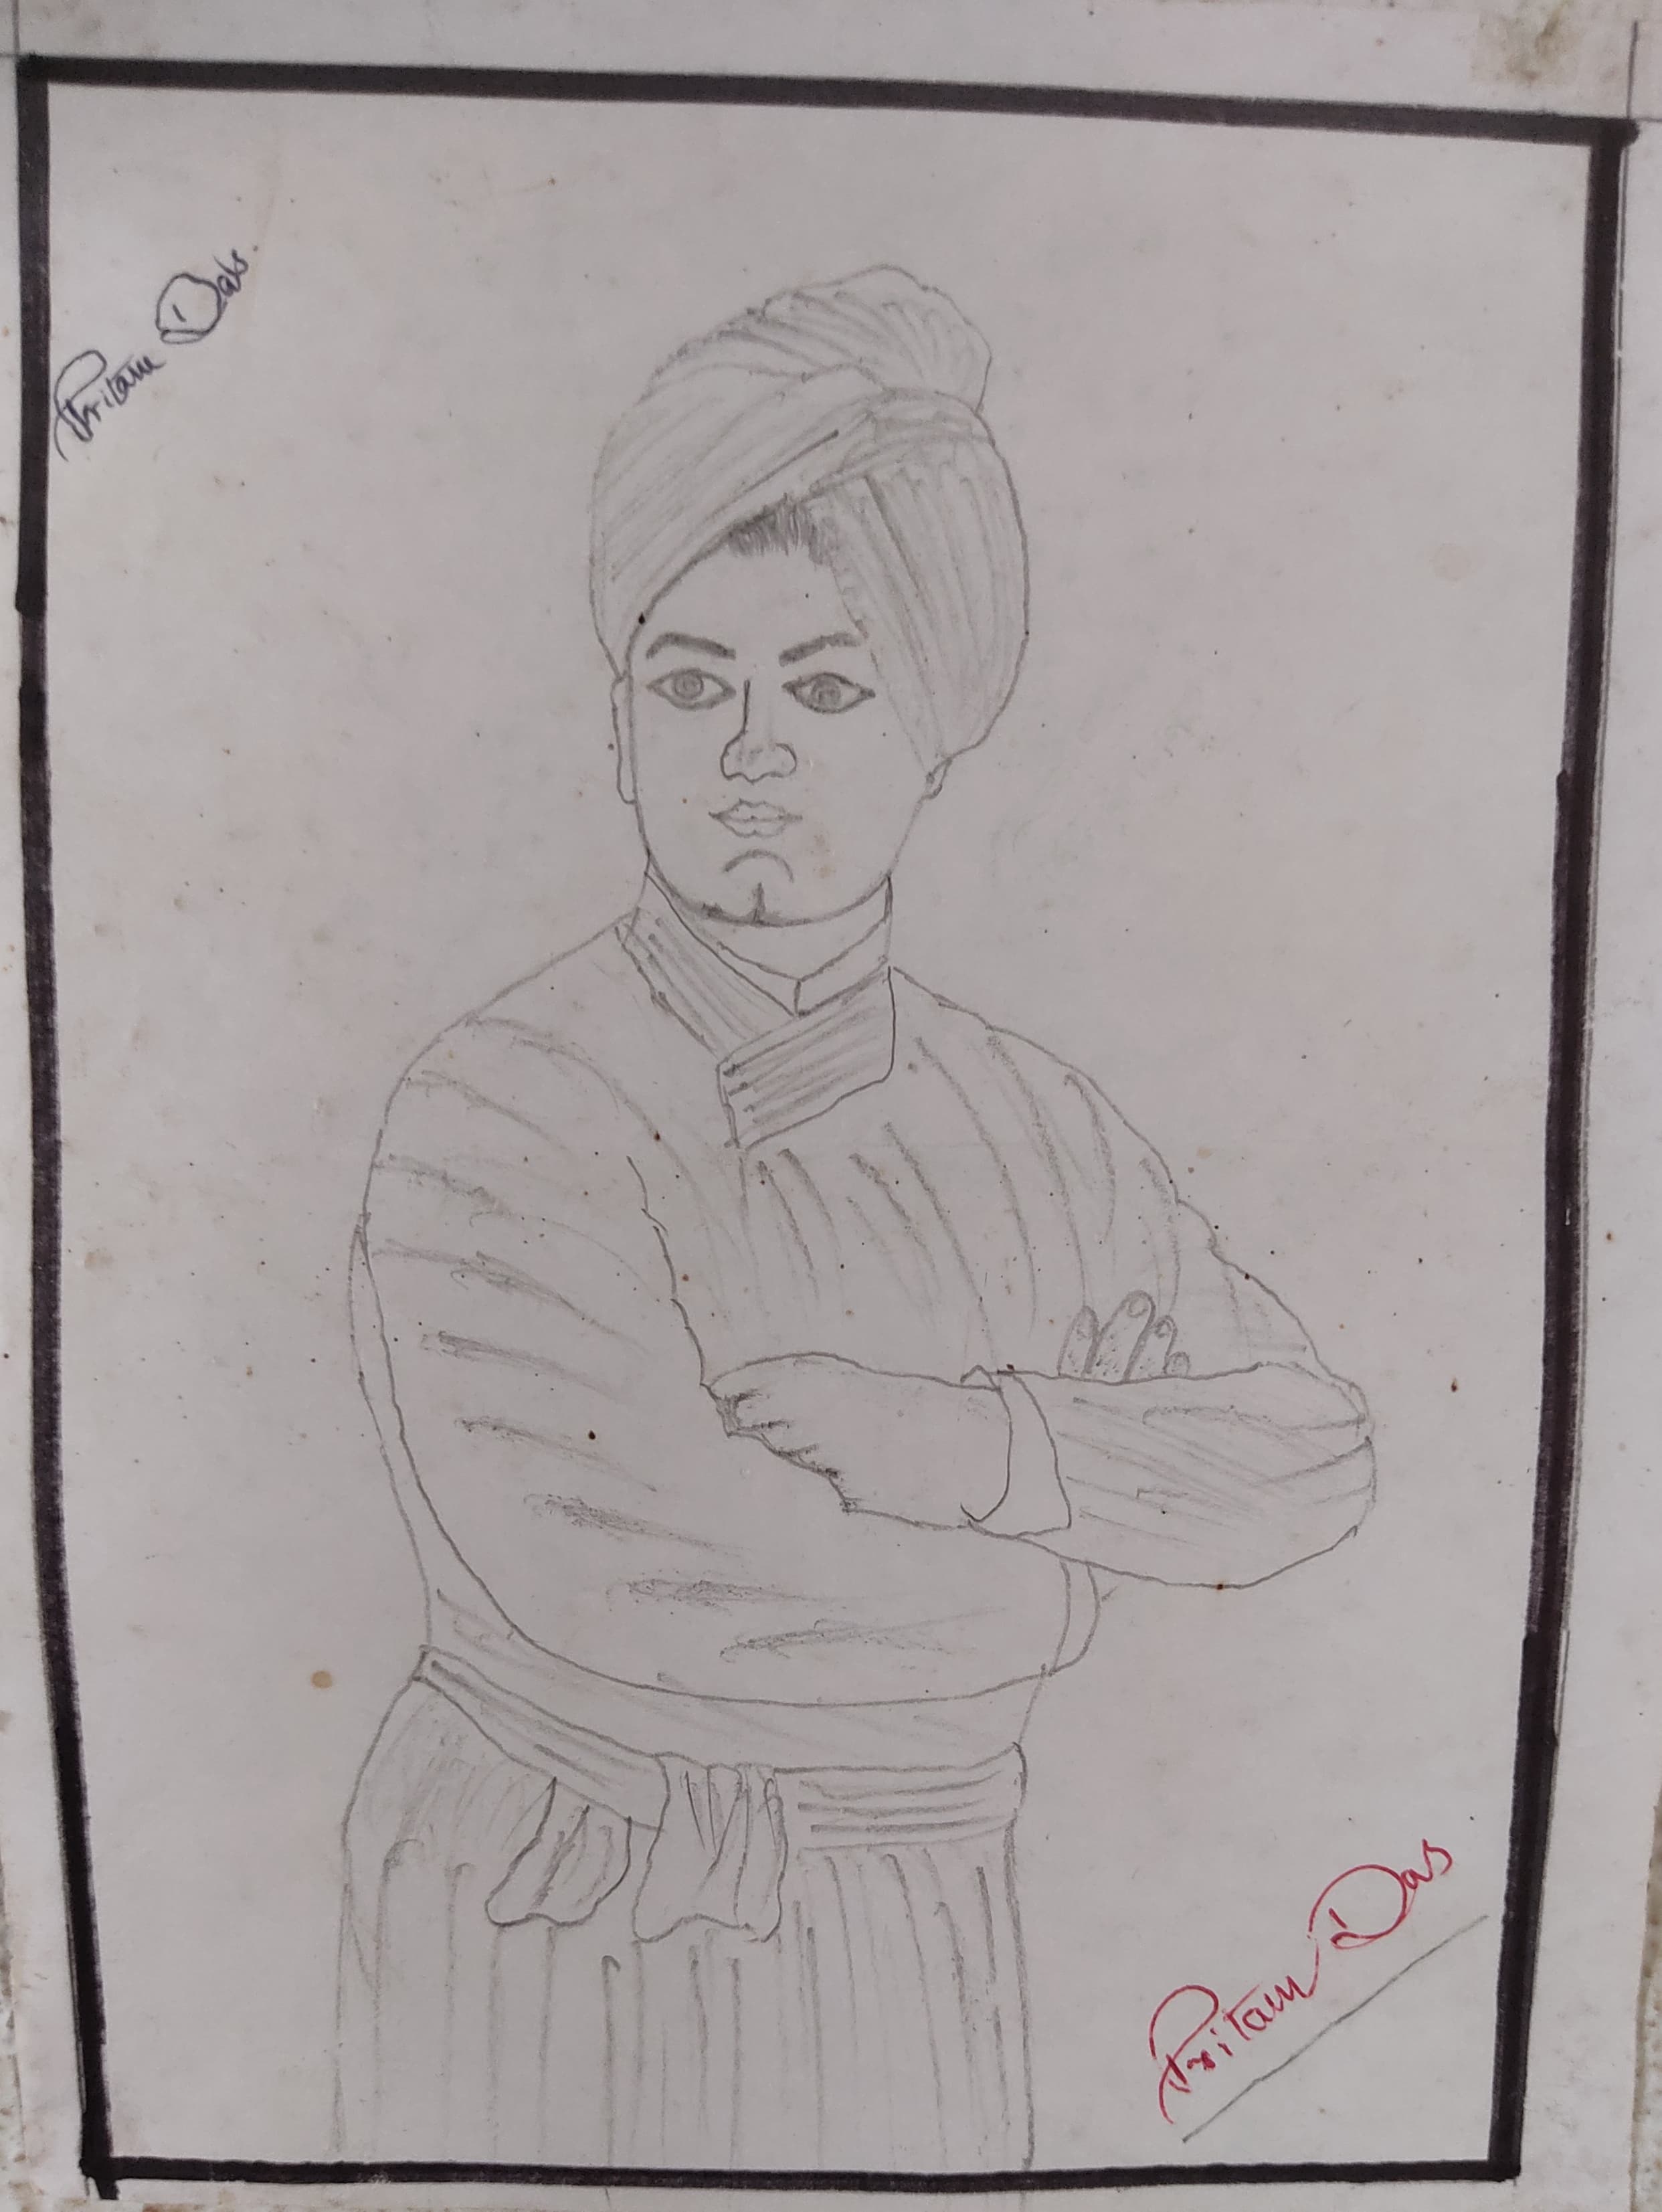 Pritam Das.
Pritam Das